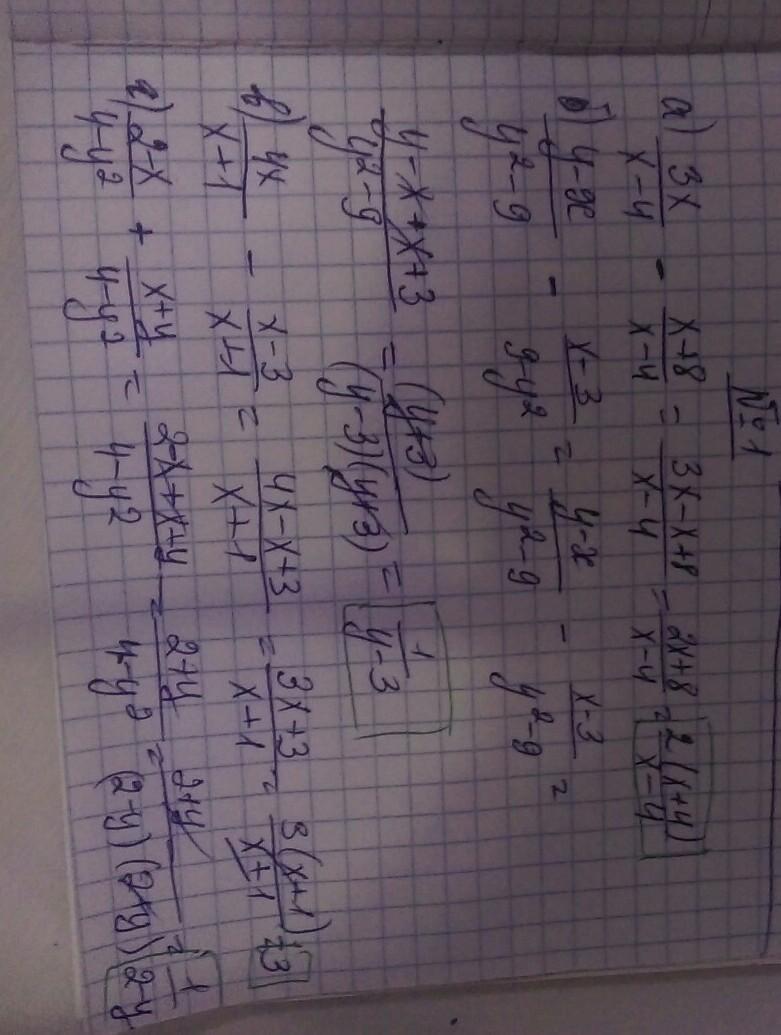 №1
а) 3x/x-4 - x+8/x-4 = 3x-x+8/x-4 = 2x+8/x-4 = 2(x+4)/x-4
б) y-x/y²-9 - x-3/9-y² = y-x/y²-9 - x-3/y²-9 =
y-x+x+3/y²-9 = (y+3)/(y-3)(y+3) = 1/y-3
в) 4x/x+1 - x-3/x+1 = 4x-x+3/x+1 = 3x+3/x+1 = 3(x+1)/x+1 = 3
г) 2-x/4-y² + x+y/4-y² = 2-x+x+y/4-y² = 2+y/4-y² = 2+y/(2-y)(2+y) = 1/2-y